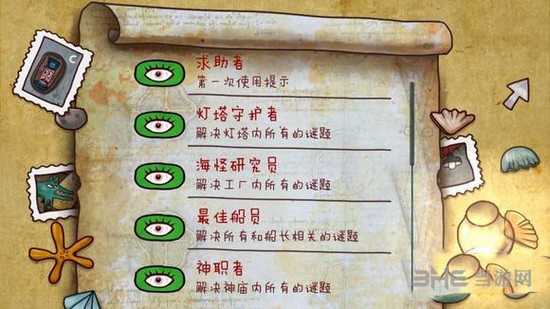 求助者
第一次使用提示
灯塔守护者
解决灯塔内所有的谜题
海怪研究员
解决工厂内所有的谜题
最佳船员
解决所有和船长相关的谜题
神职者
解决神庙内所有的谜题
C
3ME 当游网